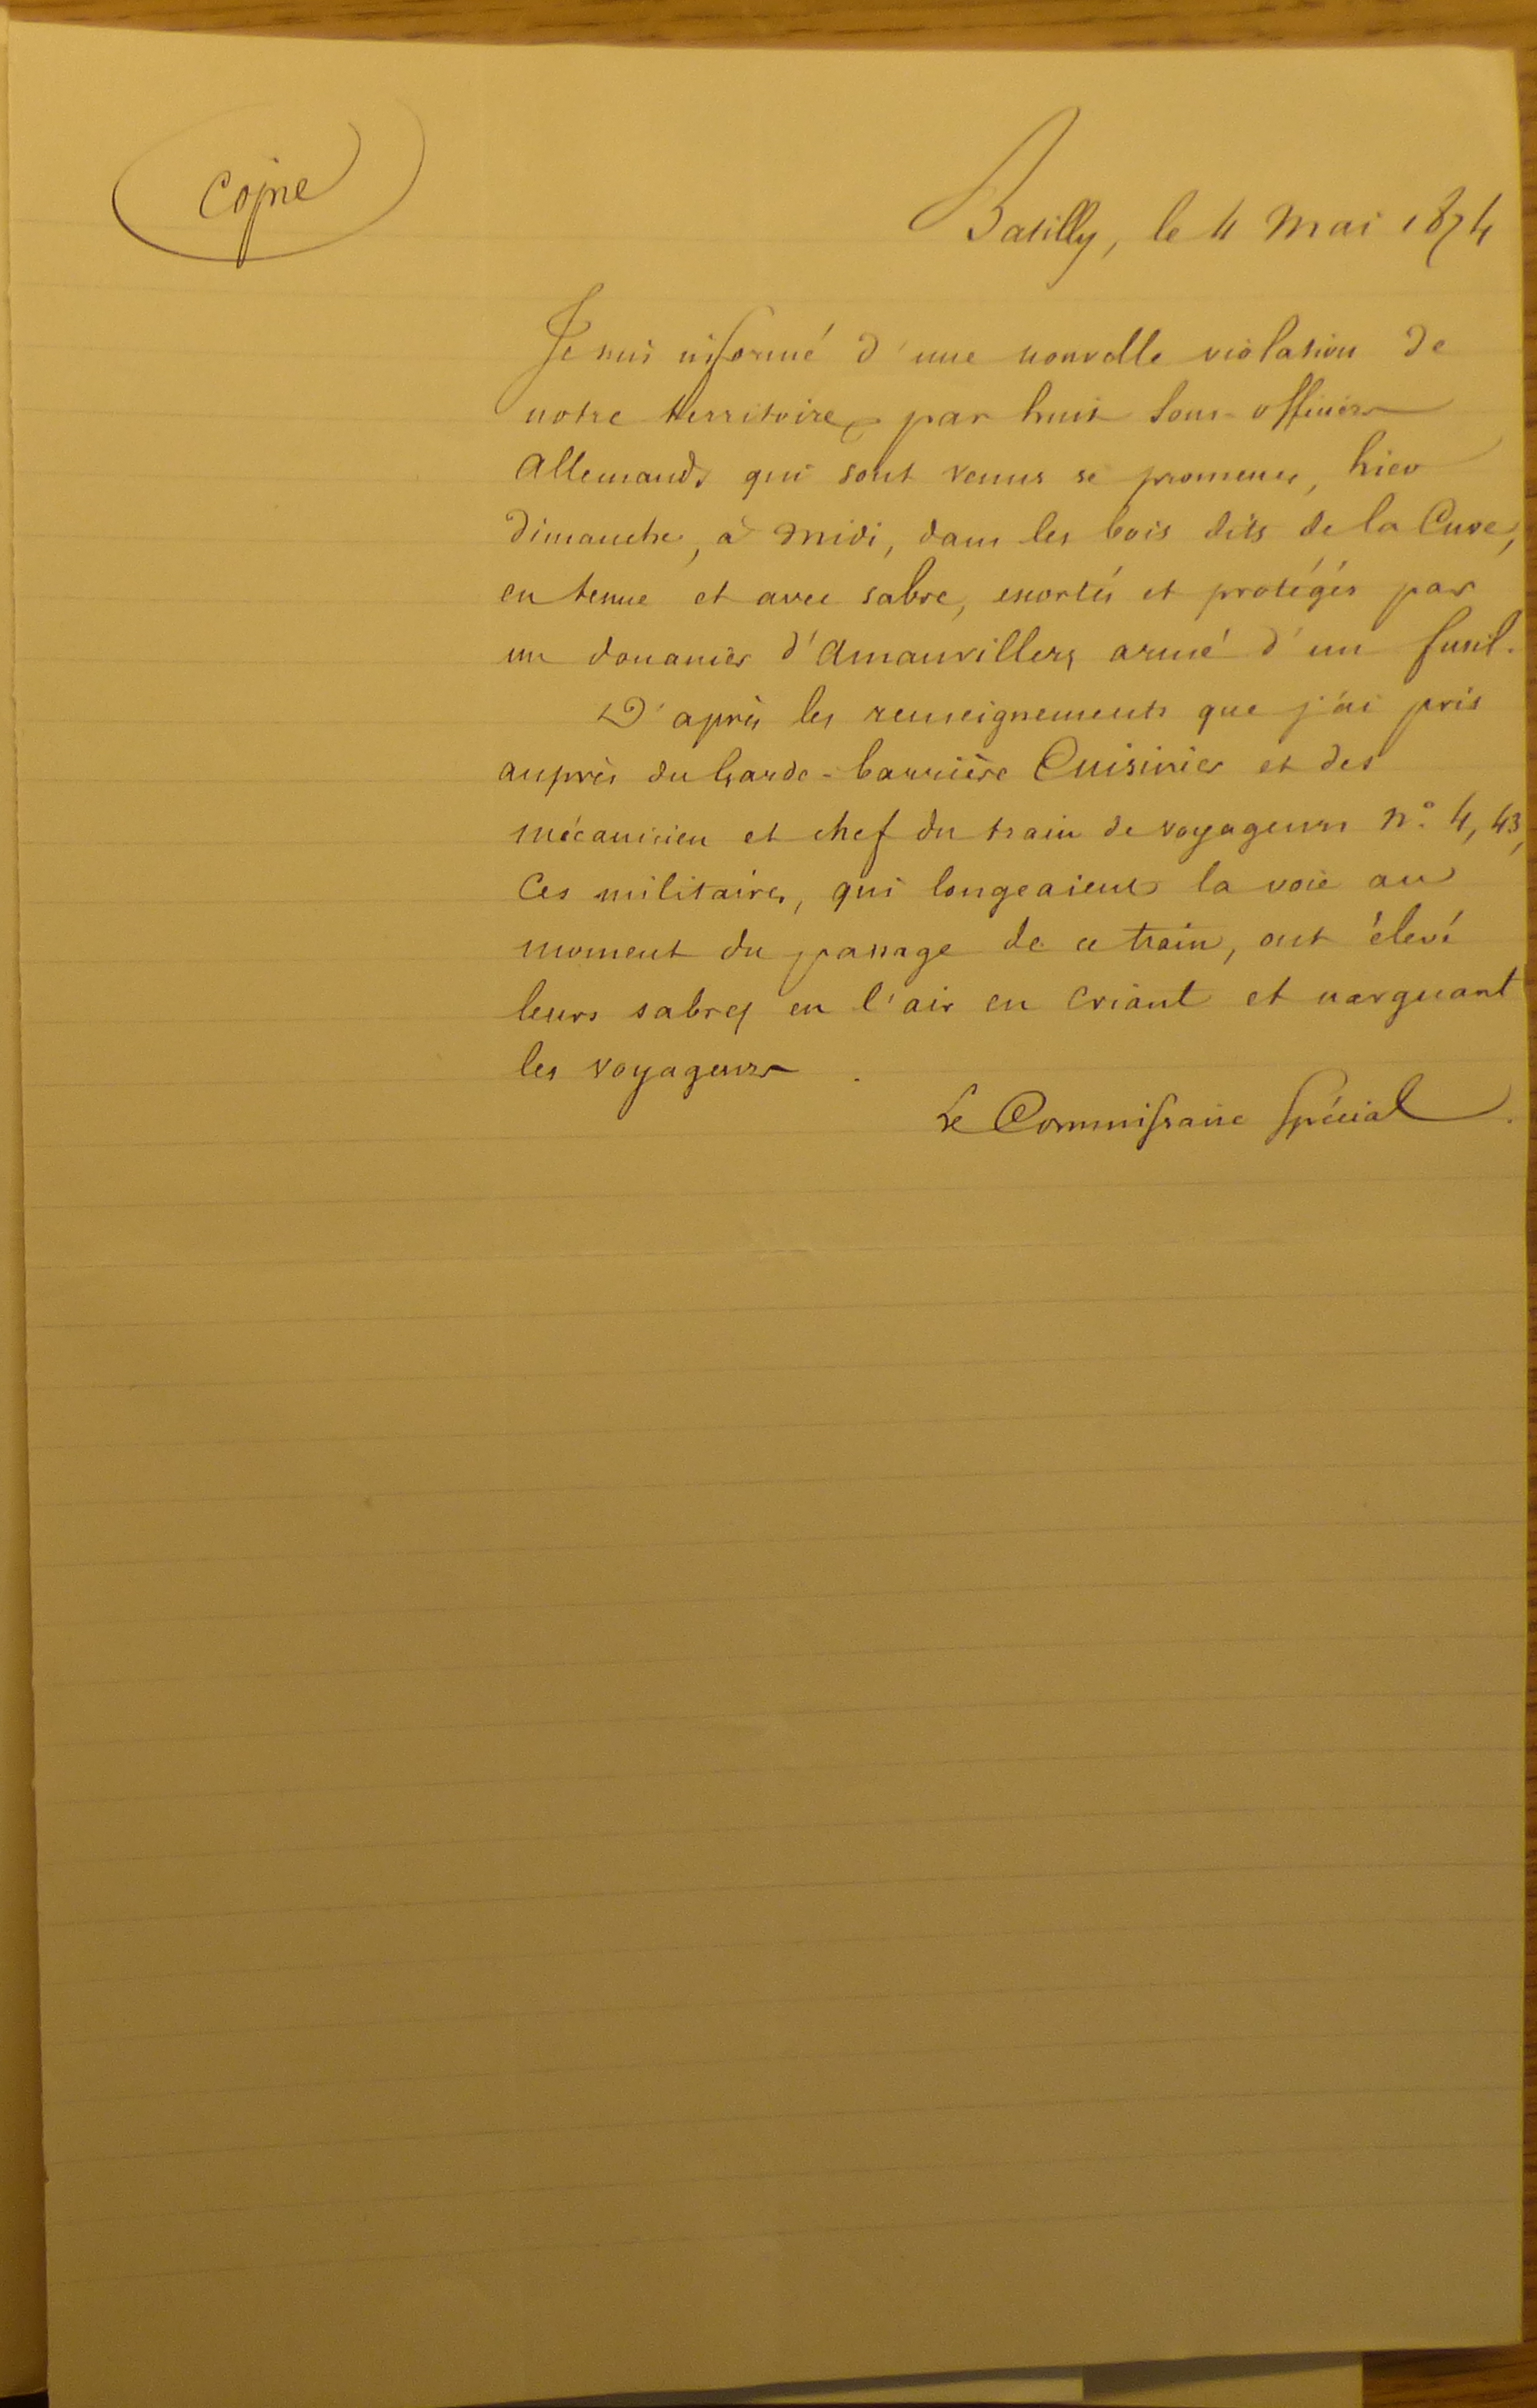 Copie
Batilly, le 4 Mai 1874
Je suis informé d'une nouvelle violation de
notre territoire, par huit Sous-officiers
Allemands qui sont venus se promener, hier
Dimanche, à Midi, dans les bois dits de la Cuve,
en tenue et avec sabre, escortés et protégés par
un douanier d'Amanvillers armé d'un fusil.
D'après les renseignements que j'ai pris
auprès du Garde-barrière Cuisinier et des
mécanicien et chef du train de voyageurs N° 4,43,
Ces militaires, qui longeaient la voie au
moment du passage de ce train, ont élevé
leurs sabres en l'air en criant et narguant
les voyageurs.
Le Commissaire Spécial.